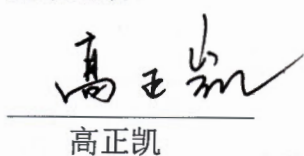 高正凯
高正凯